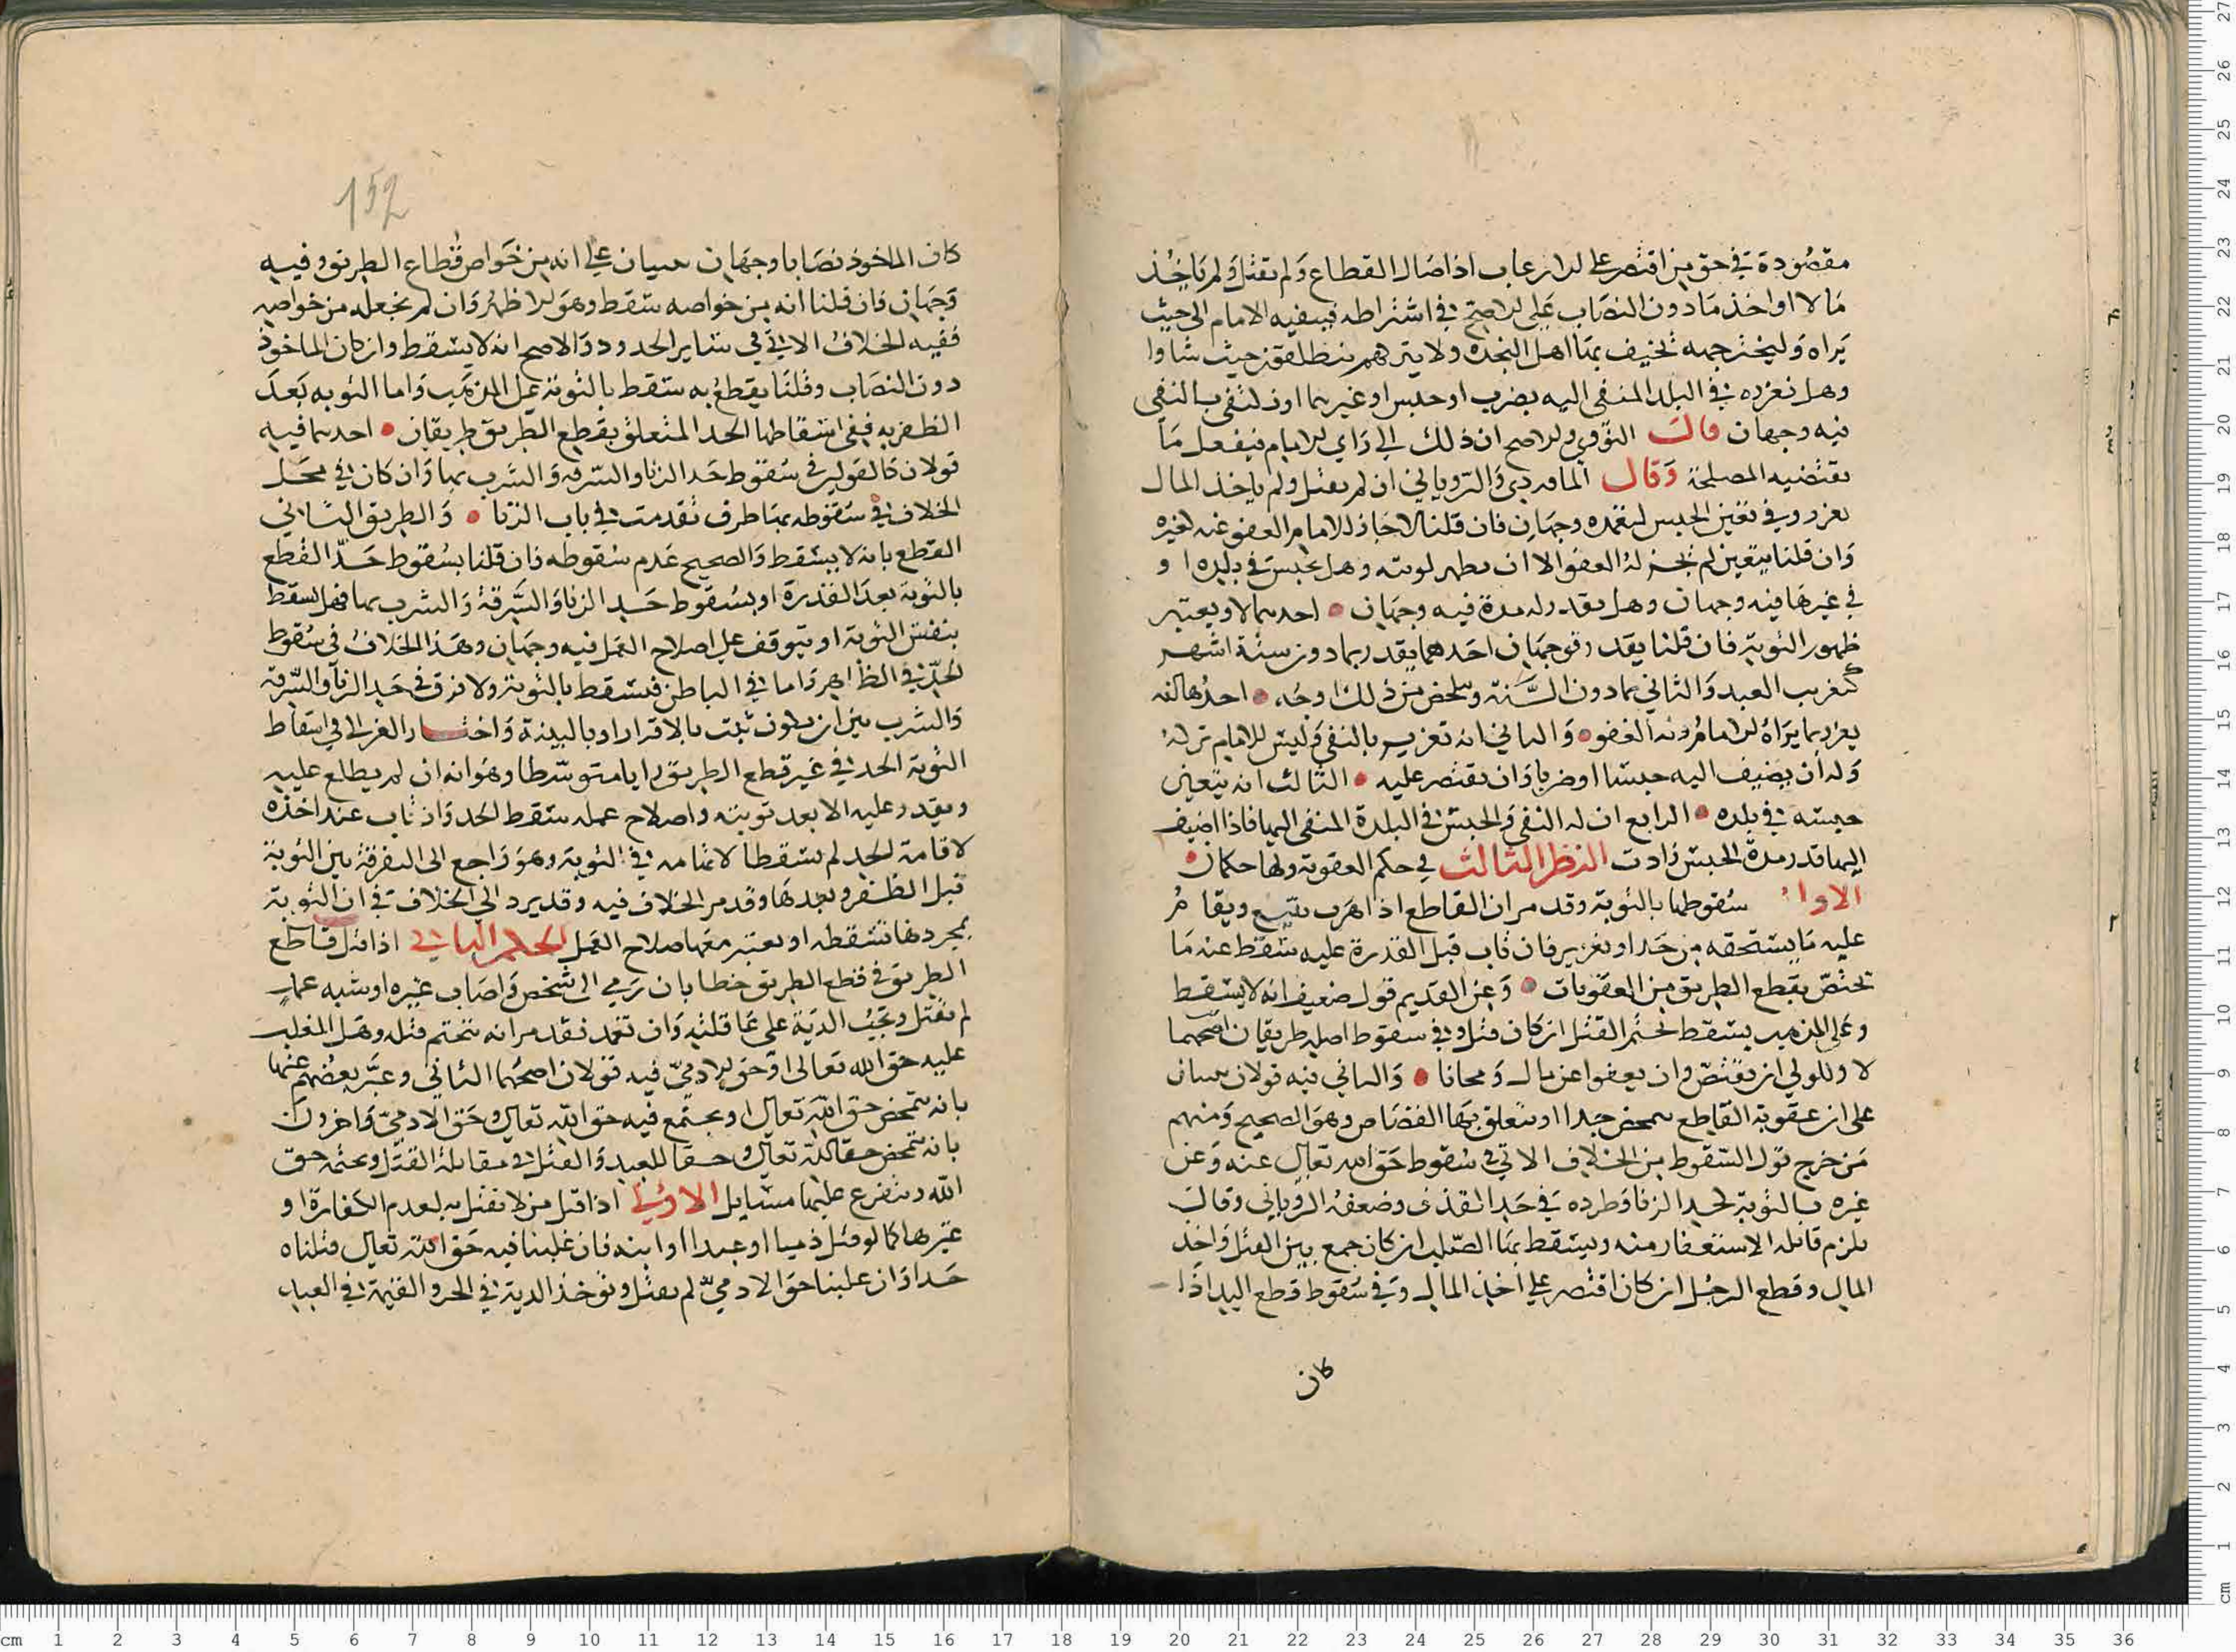 مقصودة في حق من اقتصر على الارعاب اذا صال القطاع ولم تقتل ولم ياخذ
مالا او اخذ ما دون النصاب على الاصح في اشتراطه فينفيه الامام الى حيث
يراه وليختر جهه تخيف بها اهل النجده ولا يتركهم ينطلقون حيث شاوا
وهل نعزره في البلد المنفي اليه بضرب او حبس او غيرهما او نكتفى بالنفى
فيه وجهان قالت النووي والاصح ان ذلك الى راي الامام فيفعل ما
تقتضيه المصلحة وقال الماوردي والروياني ان لم يقتل ولم ياخذ المال
يعزر وفي تعين الحبس وجهان فان قلنا لا جاز للامام العفو عنه لغيره
وان قلنا يتعين لم يجز له العفو الا ان تظهر توبته وهل يحبس في بلده او
في غيرها فيه وجهان وهل يقدر له مدة فيه وجهان احدهما لا ويعتبر
ظهور التوبة فان قلنا يقدر فوجهان احدهما يقدر بما دون ستة اشهر
كتغريب العبد والثاني بما دون السنة وتلخص من ذلك اوجه احدها انه
يعزر بما يراه الامام وله العفو والثاني انه تعزير بالنفي وليس للامام تركه
وله ان يضيف اليه حبسا او ضربا وان يقتصر عليه الثالث انه يتعين
حبسه في بلده الرابع ان له النفي والحبس في البلدة المنفي اليها فاذا اضيف
اليها قدر مدة الحبس زادت النظر الثالث في حكم العقوبة ولها حكمان
الاول سقوطها بالتوبة وقد مر ان القاطع اذا هرب يتبع ويقام
عليه ما يستحقه من حد او تعزير فان تاب قبل القدرة عليه سقط عنه ما
تختص بقطع الطريق من العقوبات وعن القديم قول ضعيف انه لا يسقط
وعلى المذهب يسقط تحتم القتل ان كان قتل وفي سقوط اصله طريقان اصحهما
لا وللولي ان يقتص وان يعفوا عن مال ومجانا والثاني فيه قولان مبنيان
على ان عقوبة القاطع تتمحض حدا او يتعلق بها القصاص وهو الصحيح ومنهم
من خرج قول السقوط من الخلاف الاتي في سقوط حق الله تعالى عنه وعن
غيره بالتوبة لحد الزنا وطرده في حد القذف وضعفه الروياني وقال
يلزم قائله الاستغفار منه ويسقط بها الصلب ان كان جمع بين القتل واخذ
المال وقطع الرجل ان كان اقتصر على اخذ المال وفي سقوط قطع اليد اذا
كان
152
كان الماخوذ نصابا وجهان مبنيان على انه من خواص قطاع الطريق وفيه
وجهان فان قلنا انه من خواصه سقط وهو الاظهر وان لم نجعله من خواصه
ففيه الخلاف الاتي في ساير الحدود والاصح انه لا يسقط وان كان الماخوذ
دون النصاب وقلنا يقطع به سقط بالتوبة على المذهب واما التوبه بعد
الظفر به ففي اسقاطها الحد المتعلق بقطع الطريق طريقان احدهما فيه
قولان كالقولين في سقوط حد الزنا والسرقه والشرب بها وان كان في محل
الخلاف في سقوطه بها طرق تقدمت في باب الزنا والطريق الثاني
القطع بانه لا يسقط والصحيح عدم سقوطه فان قلنا بسقوط حد القطع
بالتوبة بعد القدرة او بسقوط حد الزنا والسرقة والشرب بها فهل يسقط
بنفس التوبة او يتوقف على اصلاح العمل فيه وجهان وهذا الخلاف في سقوط
الحد في الظاهر واما في الباطن فيسقط بالتوبة ولا فرق في حد الزنا والسرقة
والشرب بين ان يكون ثبت بالاقرار او بالبينة واختار الغزالي في اسقاط
التوبة الحد في غير قطع الطريق رايا متوسطا وهو انه ان لم يطلع عليه
ويقدر عليه الا بعد توبته واصلاح عمله سقط الحد وان تاب عند اخذه
لاقامة الحد لم يسقط لاتهامه في التوبة وهو راجع الى التفرقة بين التوبة
قبل الظفر وبعدها وقد مر الخلاف فيه وقد يرد الى الخلاف في ان التوبة
بمجردها تسقطه او يعتبر معها صلاح العمل الحكم الثاني اذا قتل قاطع
الطريق في قطع الطريق خطا بان رمي الى شخص واصاب غيره او شبه عمد
لم يقتل وتجب الدية على عاقلته وان تعمد فقد مر انه تتحتم قتله وهل المغلب
عليه حق الله تعالى او حق الادمي فيه قولان اصحهما الثاني وعبر بعضهم عنهما
بانه يتمحض حق الله تعالى او يجتمع فيه حق الله تعالى وحق الادمي واخرون
بانه يتمحض حقا لله تعالى او حقا للعبد والقتل في مقابلة القتل وتحتمه حق
الله ويتفرع عليهما مسايل الاولى اذا قتل من لا يقتل به لعدم الكفارة او
غيرها كما لو قتل ذميا او عبدا او ابنه فان غلبنا فيه حق الله تعالى قتلناه
حدا وان غلبنا حق الادمي لم يقتل وتوخذ الدية في الحر والقيمة في العبد